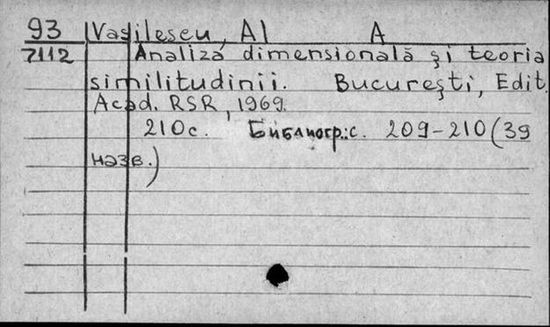 93 Vasilescu, Al A
7112 Analiza dimensională şi teoria
similitudinii. Bucureşti, Edit.
Acad. RSR, 1969.
210с. Библиогр.: с. 209-210 (39
назв.)